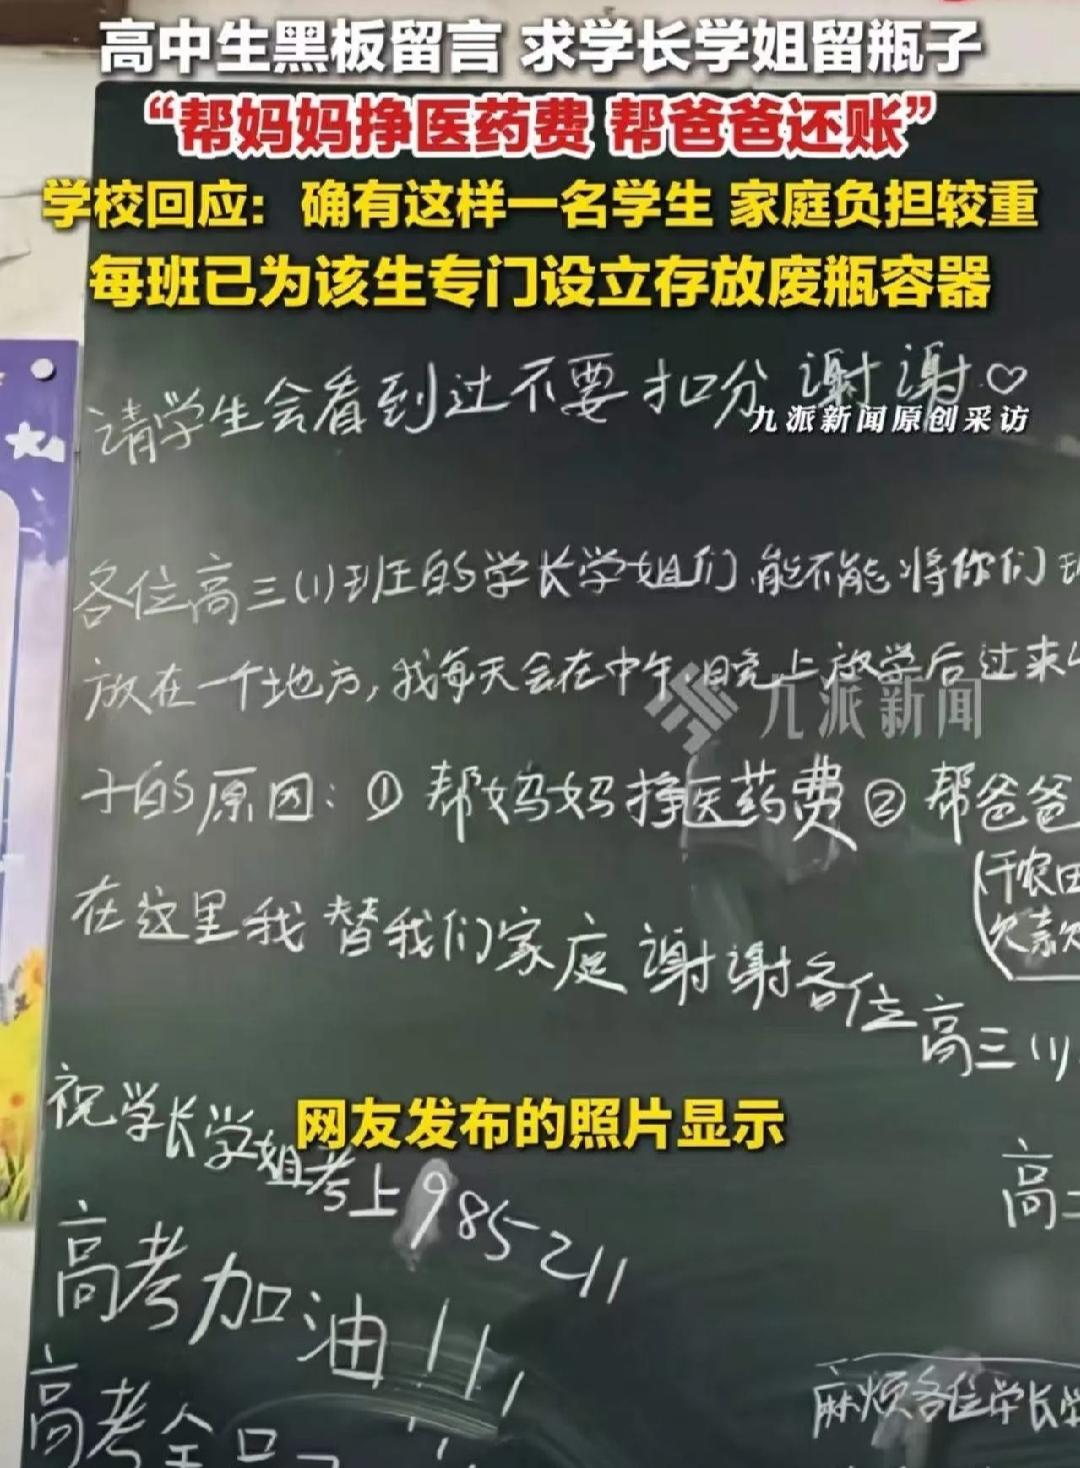 高中生黑板留言 求学长学姐留瓶子
“帮妈妈挣医药费 帮爸爸还账”
学校回应：确有这样一名学生 家庭负担较重
每班已为该生专门设立存放废瓶容器
请学生会看到过不要扣分 谢谢♡
九派新闻原创采访
各位高三(1)班的学长学姐们,能不能将你们
放在一个地方,我每天会在中午.晚上放学后过来
九派新闻
子的原因:①帮妈妈挣医药费②帮爸爸
(干农田
欠款
在这里我替我们家庭谢谢各位高三(1)
祝学长学姐考上985 211
网友发布的照片显示
高二
高考加油!!!
高考全
麻烦各位学长学